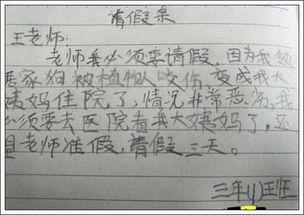 请假条
王老师:
老师我必须要请假,因为我
居家狗被植物人咬伤,变成我大
姨妈住院了,情况非常恶劣,我
必须要去医院看我大姨妈了,还
老师准假,请假三天。
三年11班班